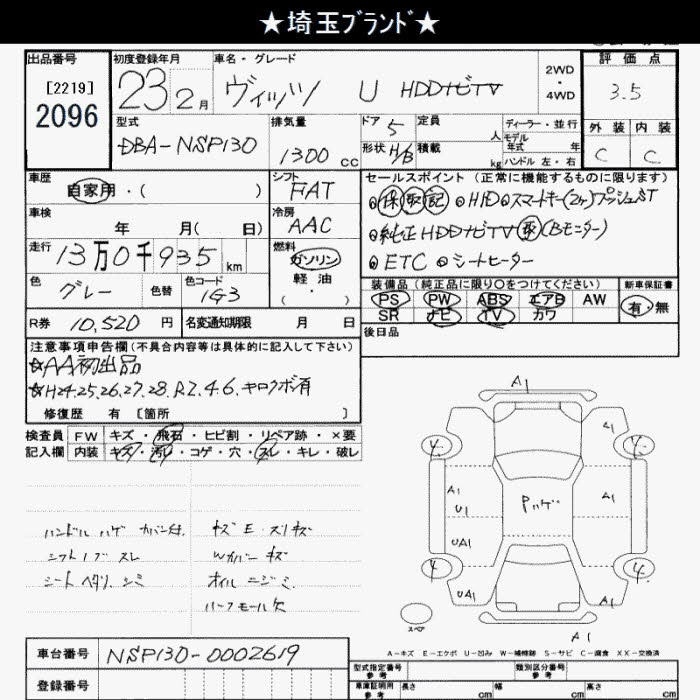 ★埼玉ﾌﾞﾗﾝﾄﾞ★
出品番号
[2219]
2096
初度登録年月
23 2月
車名・グレード
ヴィッツ U HDDナビTV
2WD
・
4WD
評価点
3.5
型式
DBA-NSP130
排気量
1300 cc
ドア 5
定員 人
形状 H/B
積載 kg
ディーラー・並行
モデル年式 年
ハンドル 左・右
外装 内装
C C
車歴
自家用・( )
シフト
FAT
車検
年 月( 日)
冷房
AAC
走行
13万0千935km
燃料
ガソリン
軽油
( ・ )
色
グレー
色替
色コード
1G3
セールスポイント (正常に機能するものに限ります)
◎保取記 ◎HID◎スマートキー(2ヶ)プッシュST
◎純正HDDナビTV取(Bモニター)
◎ETC ◎シートヒーター
装備品 (純正品に限り○をつけてください)
新車保証書
PS PW ABS エアB AW
SR ナビ TV カワ
有・無
R券 10,520 円
名変通知期限 月 日
後日品
注意事項申告欄(不具合内容等は具体的に記入して下さい)
☆AA初出品
☆H24.25.26.27.28.R2.4.6.キロクボ有
修復歴 有 [箇所 ]
検査員記入欄
FW キズ・飛石・ヒビ割・リペア跡・×要
内装 キズ・汚レ・コゲ・穴・スレ・キレ・破レ
ハンドル ハゲ カバー付
シフトノブ スレ
シート ヘタリ シミ
キズ E・スリキズ
Wカバー キズ
オイル ニジミ
ハーフモール欠
A1
A1
A1
U1
UA1
UA1
Pハゲ
A1
A1
A1
スペア
A-キズ E-エクボ U-凹み W-補修跡 S-サビ C-腐食 XX-交換済
車台番号 NSP130-0002619
登録番号
型式指定番号
参考
類別区分番号
参考
車庫証明用
参考
長さ cm
幅 cm
高さ cm